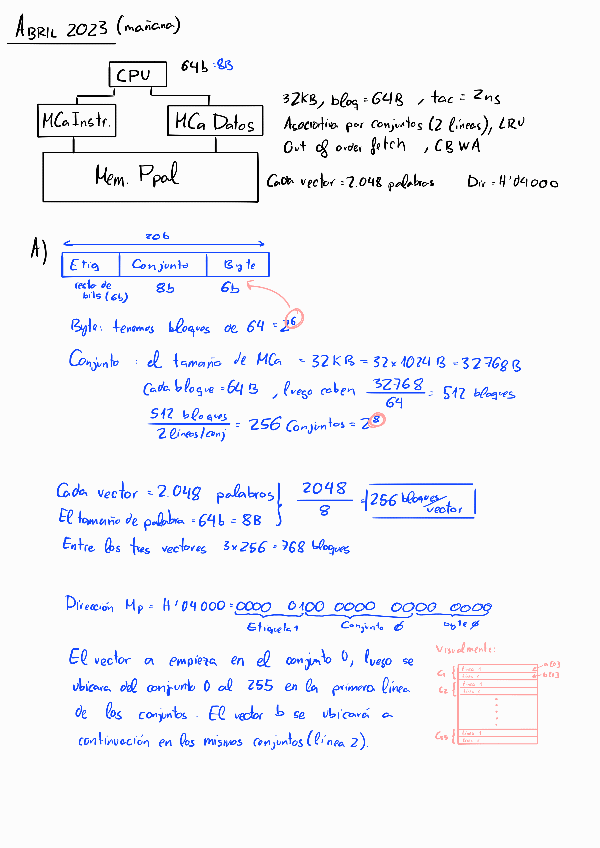 ABRIL 2023 (mañana)
CPU
64b=8B
MCa Instr.
MCa Datos
Mem. Ppal
32KB, bloq=64B, tac=2ns
Asociativa por conjuntos (2 líneas), LRU
Out of order fetch, CBWA
Cada vector=2.048 palabras Dir=H'04000
A)
20b
Etiq Conjunto Byte
resto de bits(6b) 8b 6b
Byte: tenemos bloques de 64=2^6
Conjunto: el tamaño de MCa = 32KB=32x1024B=32768B
Cada bloque=64B, luego caben 32768/64 = 512 bloques
512 bloques/2líneas/conj = 256 Conjuntos=2^8
Cada vector=2.048 palabras
El tamaño de palabra=64b=8B
2048/8 = 256 bloques/vector
Entre los tres vectores 3x256=768 bloques
Dirección Mp=H'04000=0000 0100 0000 0000 0000
Etiqueta 1 Conjunto 0 byte 0
El vector a empieza en el conjunto 0, luego se
ubicara del conjunto 0 al 255 en la primera línea
de los conjuntos. El vector b se ubicará a
continuación en los mismos conjuntos(línea 2).
Visualmente:
C1 línea 1 a[0]
línea 2 b[0]
C2 línea 1
línea 2
línea 1
línea 2